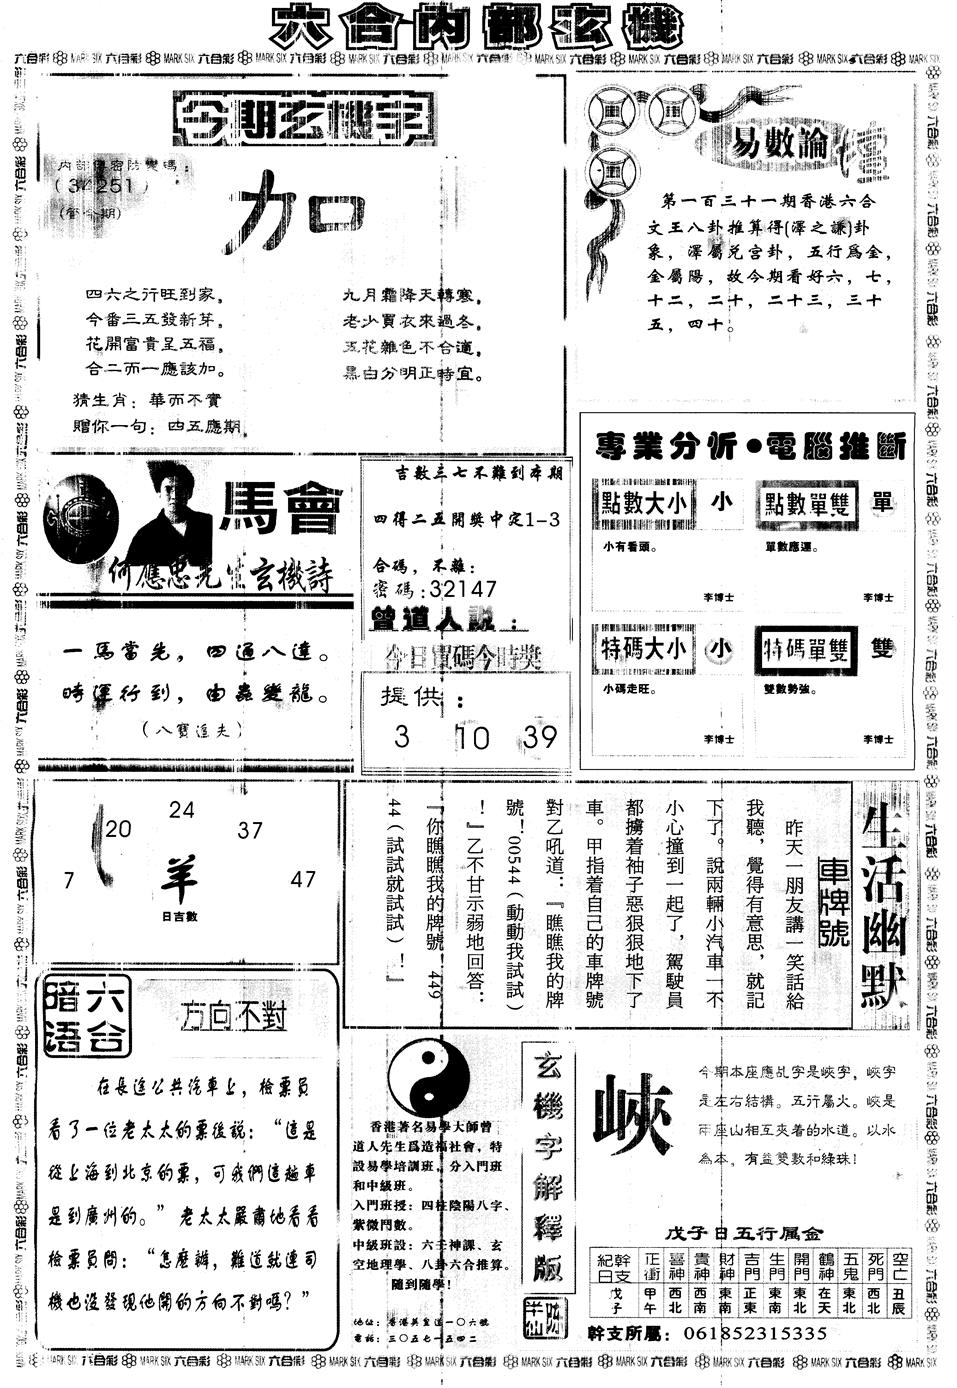 六合內部玄機
今期玄機字
(34251)
加
四六之行旺到家，
今番三五發新芽。
花開富貴呈五福，
合二而一應該加。
九月霜降天轉寒，
老少買衣來過冬。
五花雜色不合適，
黑白分明正時宜。
猜生肖：華而不實
贈你一句：四五應期
易數論壇
第一百三十一期香港六合
文王八卦推算得(澤之謙)卦
象，澤屬兌宮卦，五行爲金，
金屬陽，故今期看好六，七，
十二，二十，二十三，三十
五，四十。
專業分析●電腦推斷
點數大小 小
小有看頭。
李博士
點數單雙 單
單數應運。
李博士
特碼大小 小
小碼走旺。
李博士
特碼單雙 雙
雙數勢強。
李博士
馬會
何應忠先生玄機詩
一馬當先，四通八達。
時運行到，由蟲變龍。
(八寶進夫)
吉數三七不難到本期
四得二五開獎中定1-3
合碼，不離：
密碼：32147
曾道人説：
今日買碼今時獎
提供：
3 10 39
7 20 24 37 47
羊
日吉數
生活幽默
車牌號
昨天一朋友講一笑話給
我聽，覺得有意思，就記
下了。說兩輛小汽車一不
小心撞到一起了，駕駛員
都擄着袖子惡狠狠地下了
車。甲指着自己的車牌號
對乙吼道：『瞧瞧我的牌
號！00544（動動我試試）
！』乙不甘示弱地回答：
『你瞧瞧我的牌號！449
44（試試就試試）！』
六合暗語
方向不對
在長途公共汽車上，檢票員
看了一位老太太的票後說：“這是
從上海到北京的票，可我們這趟車
是到廣州的。”老太太嚴肅地看看
檢票員問：“怎麼辦，難道就連司
機也沒發現他開的方向不對嗎？”
香港著名易學大師曾
道人先生爲造福社會，特
設易學培訓班，分入門班
和中級班。
入門班授：四柱陰陽八字、
紫微門數。
中級班設：六壬神課、玄
空地理學、八卦六合推算。
隨到隨學！
地址：香港英皇道一〇六號
電話：三〇五七一五四二
玄機字解釋版
峽
今期本座應乩字是峽字，峽字
是左右結構。五行屬火。峽是
兩座山相互夾着的水道。以水
為本，有益雙數和綠珠！
戊子日五行属金
幹支紀日 正衝 喜神 貴神 財神 吉門 生門 開門 鶴神 五鬼 死門 空亡
戊子 甲午 西北 西南 東南 正東 東南 東北 在天 東北 西北 丑辰
幹支所屬：061852315335